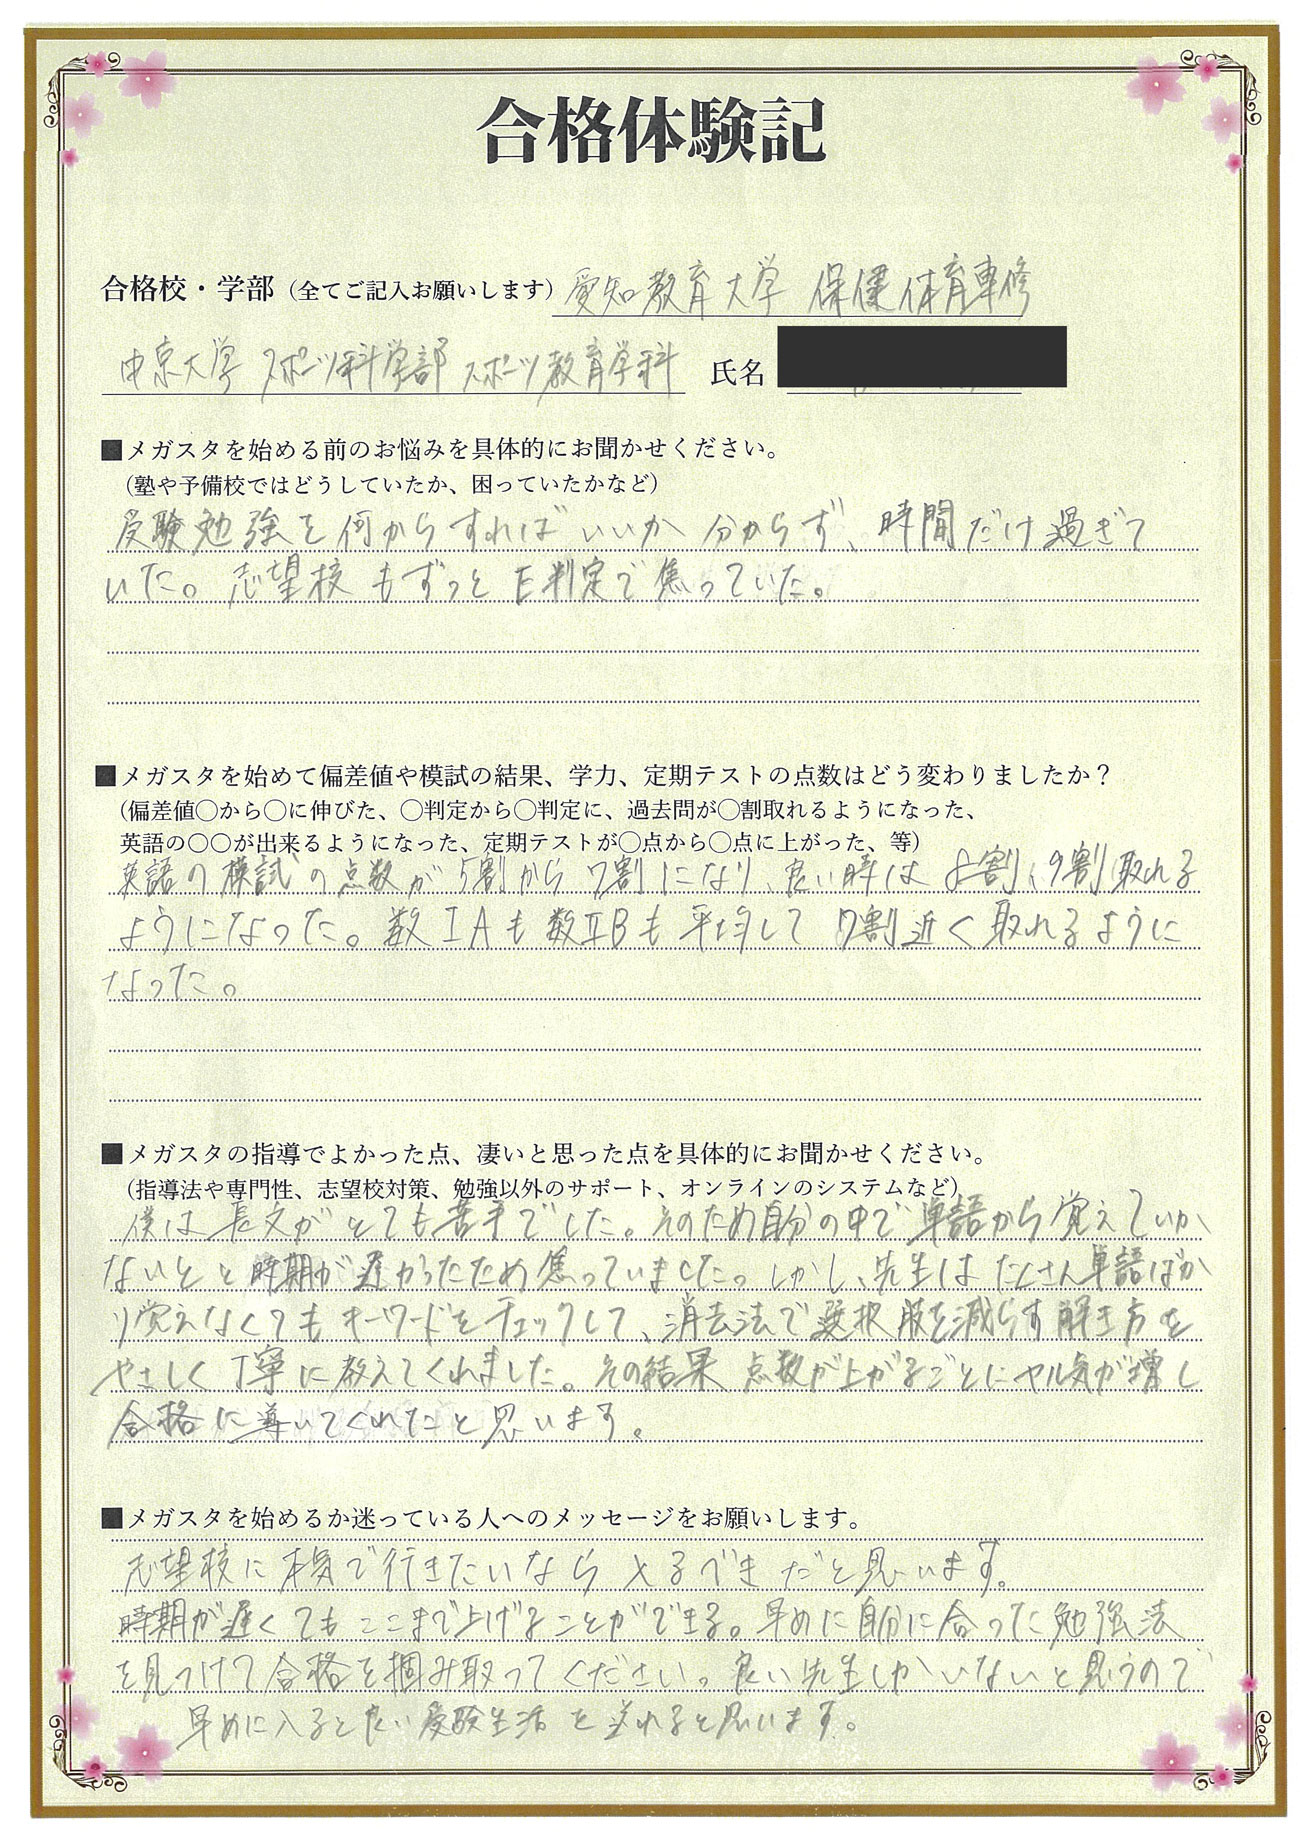 合格体験記
合格校・学部（全てご記入お願いします）愛知教育大学 保健体育専修
中京大学 スポーツ科学部 スポーツ教育学科 氏名
■メガスタを始める前のお悩みを具体的にお聞かせください。
（塾や予備校ではどうしていたか、困っていたかなど）
受験勉強を何からすればいいか分からず、時間だけ過ぎて
いた。志望校もずっとE判定で焦っていた。
■メガスタを始めて偏差値や模試の結果、学力、定期テストの点数はどう変わりましたか？
（偏差値〇から〇に伸びた、〇判定から〇判定に、過去問が〇割取れるようになった、
英語の〇〇が出来るようになった、定期テストが〇点から〇点に上がった、等）
英語の模試の点数が5割から7割になり、良い時は8割、9割取れる
ようになった。数ⅠAも数ⅡBも平均して7割近く取れるように
なった。
■メガスタの指導でよかった点、凄いと思った点を具体的にお聞かせください。
（指導法や専門性、志望校対策、勉強以外のサポート、オンラインのシステムなど）
僕は長文がとても苦手でした。そのため自分の中で単語から覚えていか
ないとと時期が遅かったため焦っていました。しかし、先生はたくさん単語ばか
り覚えなくてもキーワードをチェックして、消去法で選択肢を減らす解き方を
やさしく丁寧に教えてくれました。その結果 点数が上がるごとにヤル気が増し
合格に導いてくれたと思います。
■メガスタを始めるか迷っている人へのメッセージをお願いします。
志望校に本気で行きたいなら入るべきだと思います。
時期が遅くてもここまで上げることができる。早めに自分に合った勉強法
を見つけて合格を掴み取ってください。良い先生しかいないと思うので
早めに入ると良い受験生活を送れると思います。